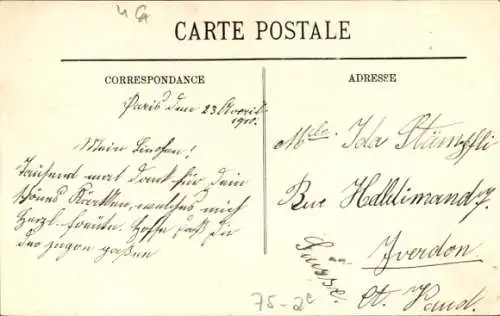 4 G
CARTE POSTALE
CORRESPONDANCE
ADRESSE
Paris den 23 Avril
1910.
Mein Linchen!
Tausend mal Dank für Dein
schönes Kärtchen, welches mich
herzl. freute. Hoffe daß Dir
der
Mlle. Ida Stämpfli
Rue Haldimand 7.
Yverdon.
Suisse.
Ct. Vaud.
75-2e